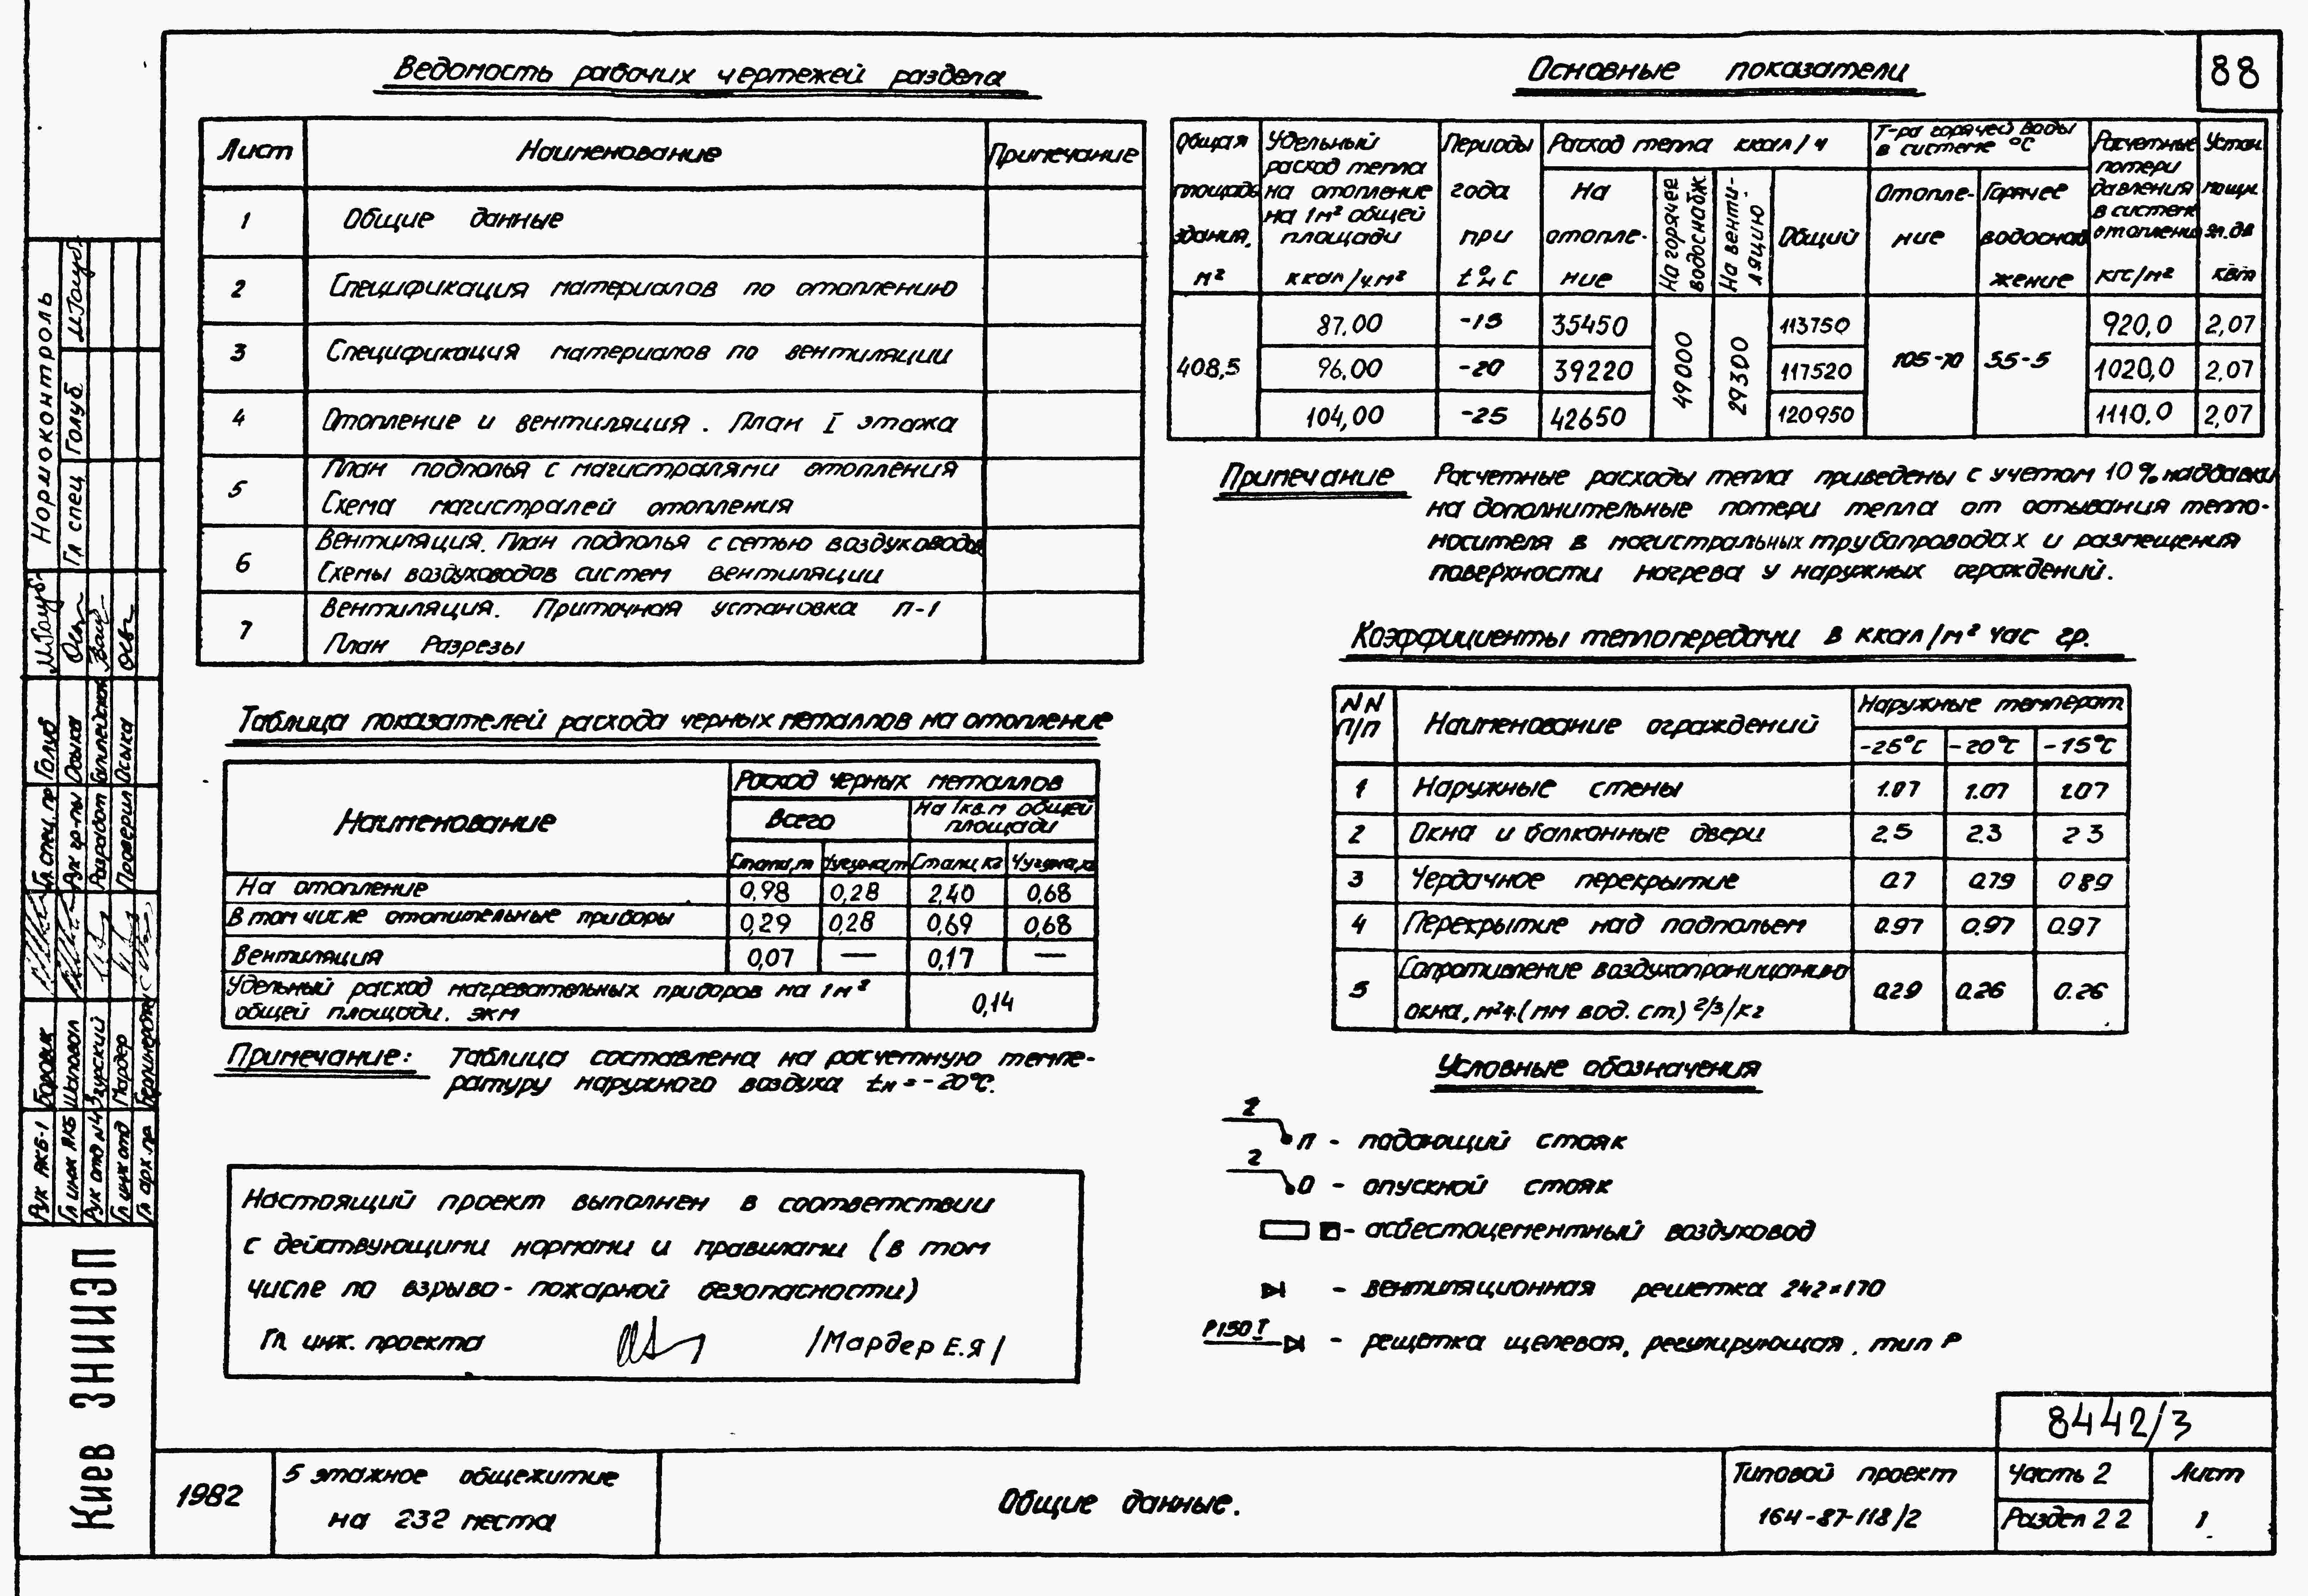 88
Ведомость рабочих чертежей раздела
Лист Наименование Примечание
1 Общие данные
2 Спецификация материалов по отоплению
3 Спецификация материалов по вентиляции
4 Отопление и вентиляция. План I этажа
5 План подполья с магистралями отопления
Схема магистралей отопления
6 Вентиляция. План подполья с сетью воздуховодов
Схемы воздуховодов систем вентиляции
7 Вентиляция. Приточная установка П-1
План Разрезы
Основные показатели
Общая площадь здания, м²
Удельный расход тепла на отопление на 1м² общей площади ккал/ч.м²
Периоды года при t°н С
Расход тепла ккал/ч
На отопле-
ние
На горячее водоснабж.
На венти-
ляцию
Общий
Т-ра горячей воды в системе °С
Отопле-
ние
Горячее водоснаб
жение
Расчетные потери давления в систем отоплени кгс/м²
Устан. мощн. эл.дв квт
408,5
87.00 -15 35450 113750 920,0 2,07
96.00 -20 39220 117520 1020,0 2,07
104,00 -25 42650 120950 1110.0 2,07
49000
29300
105-70
55-5
Примечание Расчетные расходы тепла приведены с учетом 10% надбавки
на дополнительные потери тепла от остывания тепло-
носителя в магистральных трубопроводах и размещения
поверхности нагрева у наружных ограждений.
Коэффициенты теплопередачи в ккал/м² час гр.
NN п/п Наименование ограждений Наружные температ
-25°С -20°С -15°С
1 Наружные стены 1.07 1.07 1.07
2 Окна и балконные двери 2.5 2.3 2 3
3 Чердачное перекрытие 0.7 0.79 0 89
4 Перекрытие над подпольем 0.97 0.97 0.97
5 Сопротивление воздухопроницанию
окна, м²ч.(мм вод. ст) 2/3/кг 0.29 0.26 0.26
Таблица показателей расхода черных металлов на отопление
Наименование Расход черных металлов
Всего На 1кв.м общей площади
Стали,т Чугуна,т Стали кг Чугуна,кг
На отопление 0,98 0,28 2,40 0,68
В том числе отопительные приборы 0,29 0,28 0,69 0,68
Вентиляция 0,07 — 0,17 —
Удельный расход нагревательных приборов на 1м²
общей площади. экм 0,14
Примечание: Таблица составлена на расчетную темпе-
ратуру наружного воздуха tн = -20°С.
Настоящий проект выполнен в соответствии
с действующими нормами и правилами (в том
числе по взрыво-пожарной безопасности)
Гл инж. проекта /Мардер Е.Я/
Условные обозначения
2 п - подающий стояк
2 о - опускной стояк
- асбестоцементный воздуховод
- вентиляционная решетка 242×170
Р150 I - решетка щелевая, регулирующая, тип Р
Нормоконтроль
Гл спец Голуб
Гл. спец. пр Голуб
Рук гр-пы Осыка
Разработ
Проверил Осыка
Рук АКБ-1 Боровик
Гл инж АКБ Шаповал
Рук отд N4 Згурский
Гл инж отд Мардер
Гл арх. пр
Киев ЗНИИЭП
8442/3
1982
5 этажное общежитие
на 232 места
Общие данные.
Типовой проект
164-87-118/2
Часть 2
Раздел 2 2
Лист
1